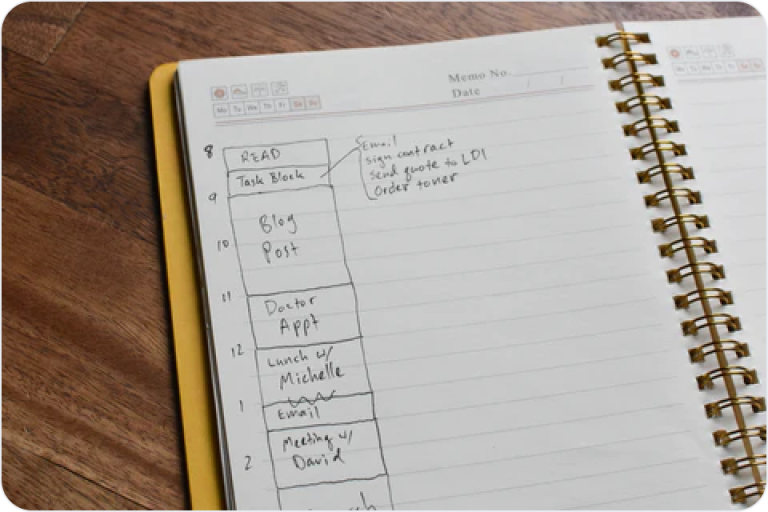 Mo Tu We Th Fr Sa Su
Memo No.
Date / /
8
READ
Task Block
Email
sign contract
send quote to LDI
Order toner
9
Blog
10
Post
11
Doctor
Appt
12
Lunch w/
Michelle
1
Email
Meeting w/
2
David